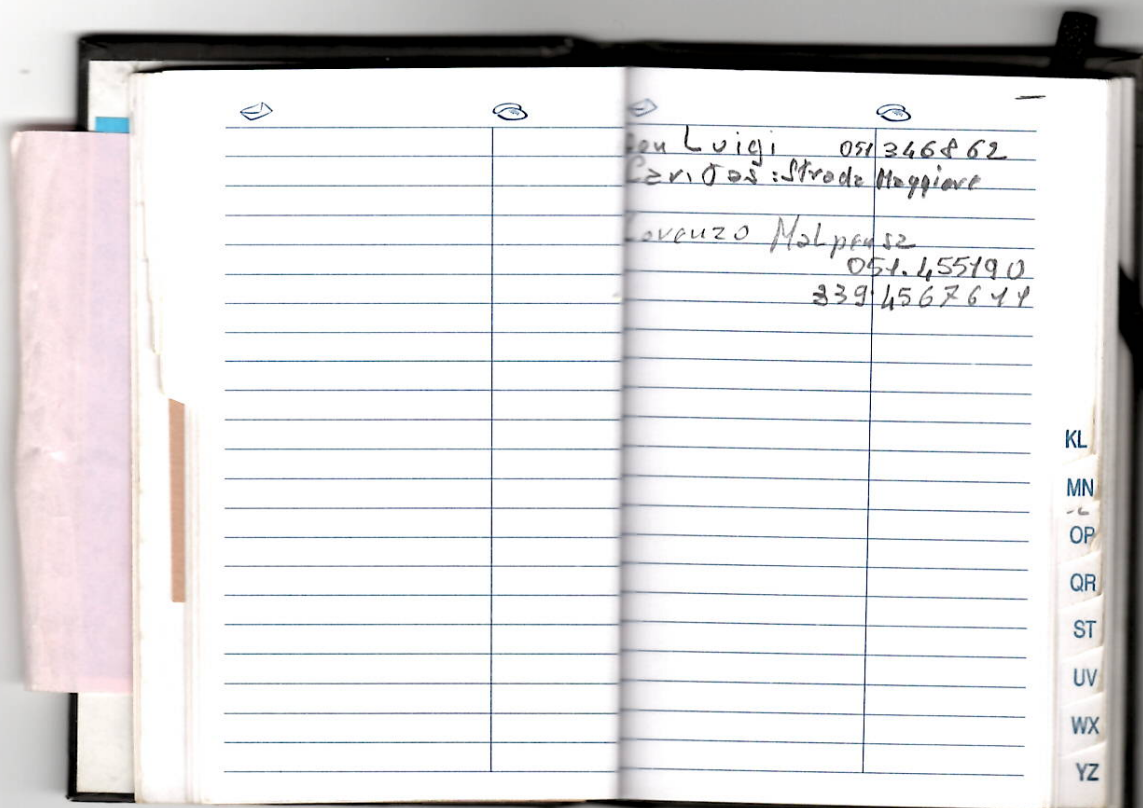 Don Luigi 051 346862
Caritas: Strada Maggiore
Lorenzo Malpensa
051.455190
339 4567611
KL
MN
OP
QR
ST
UV
WX
YZ